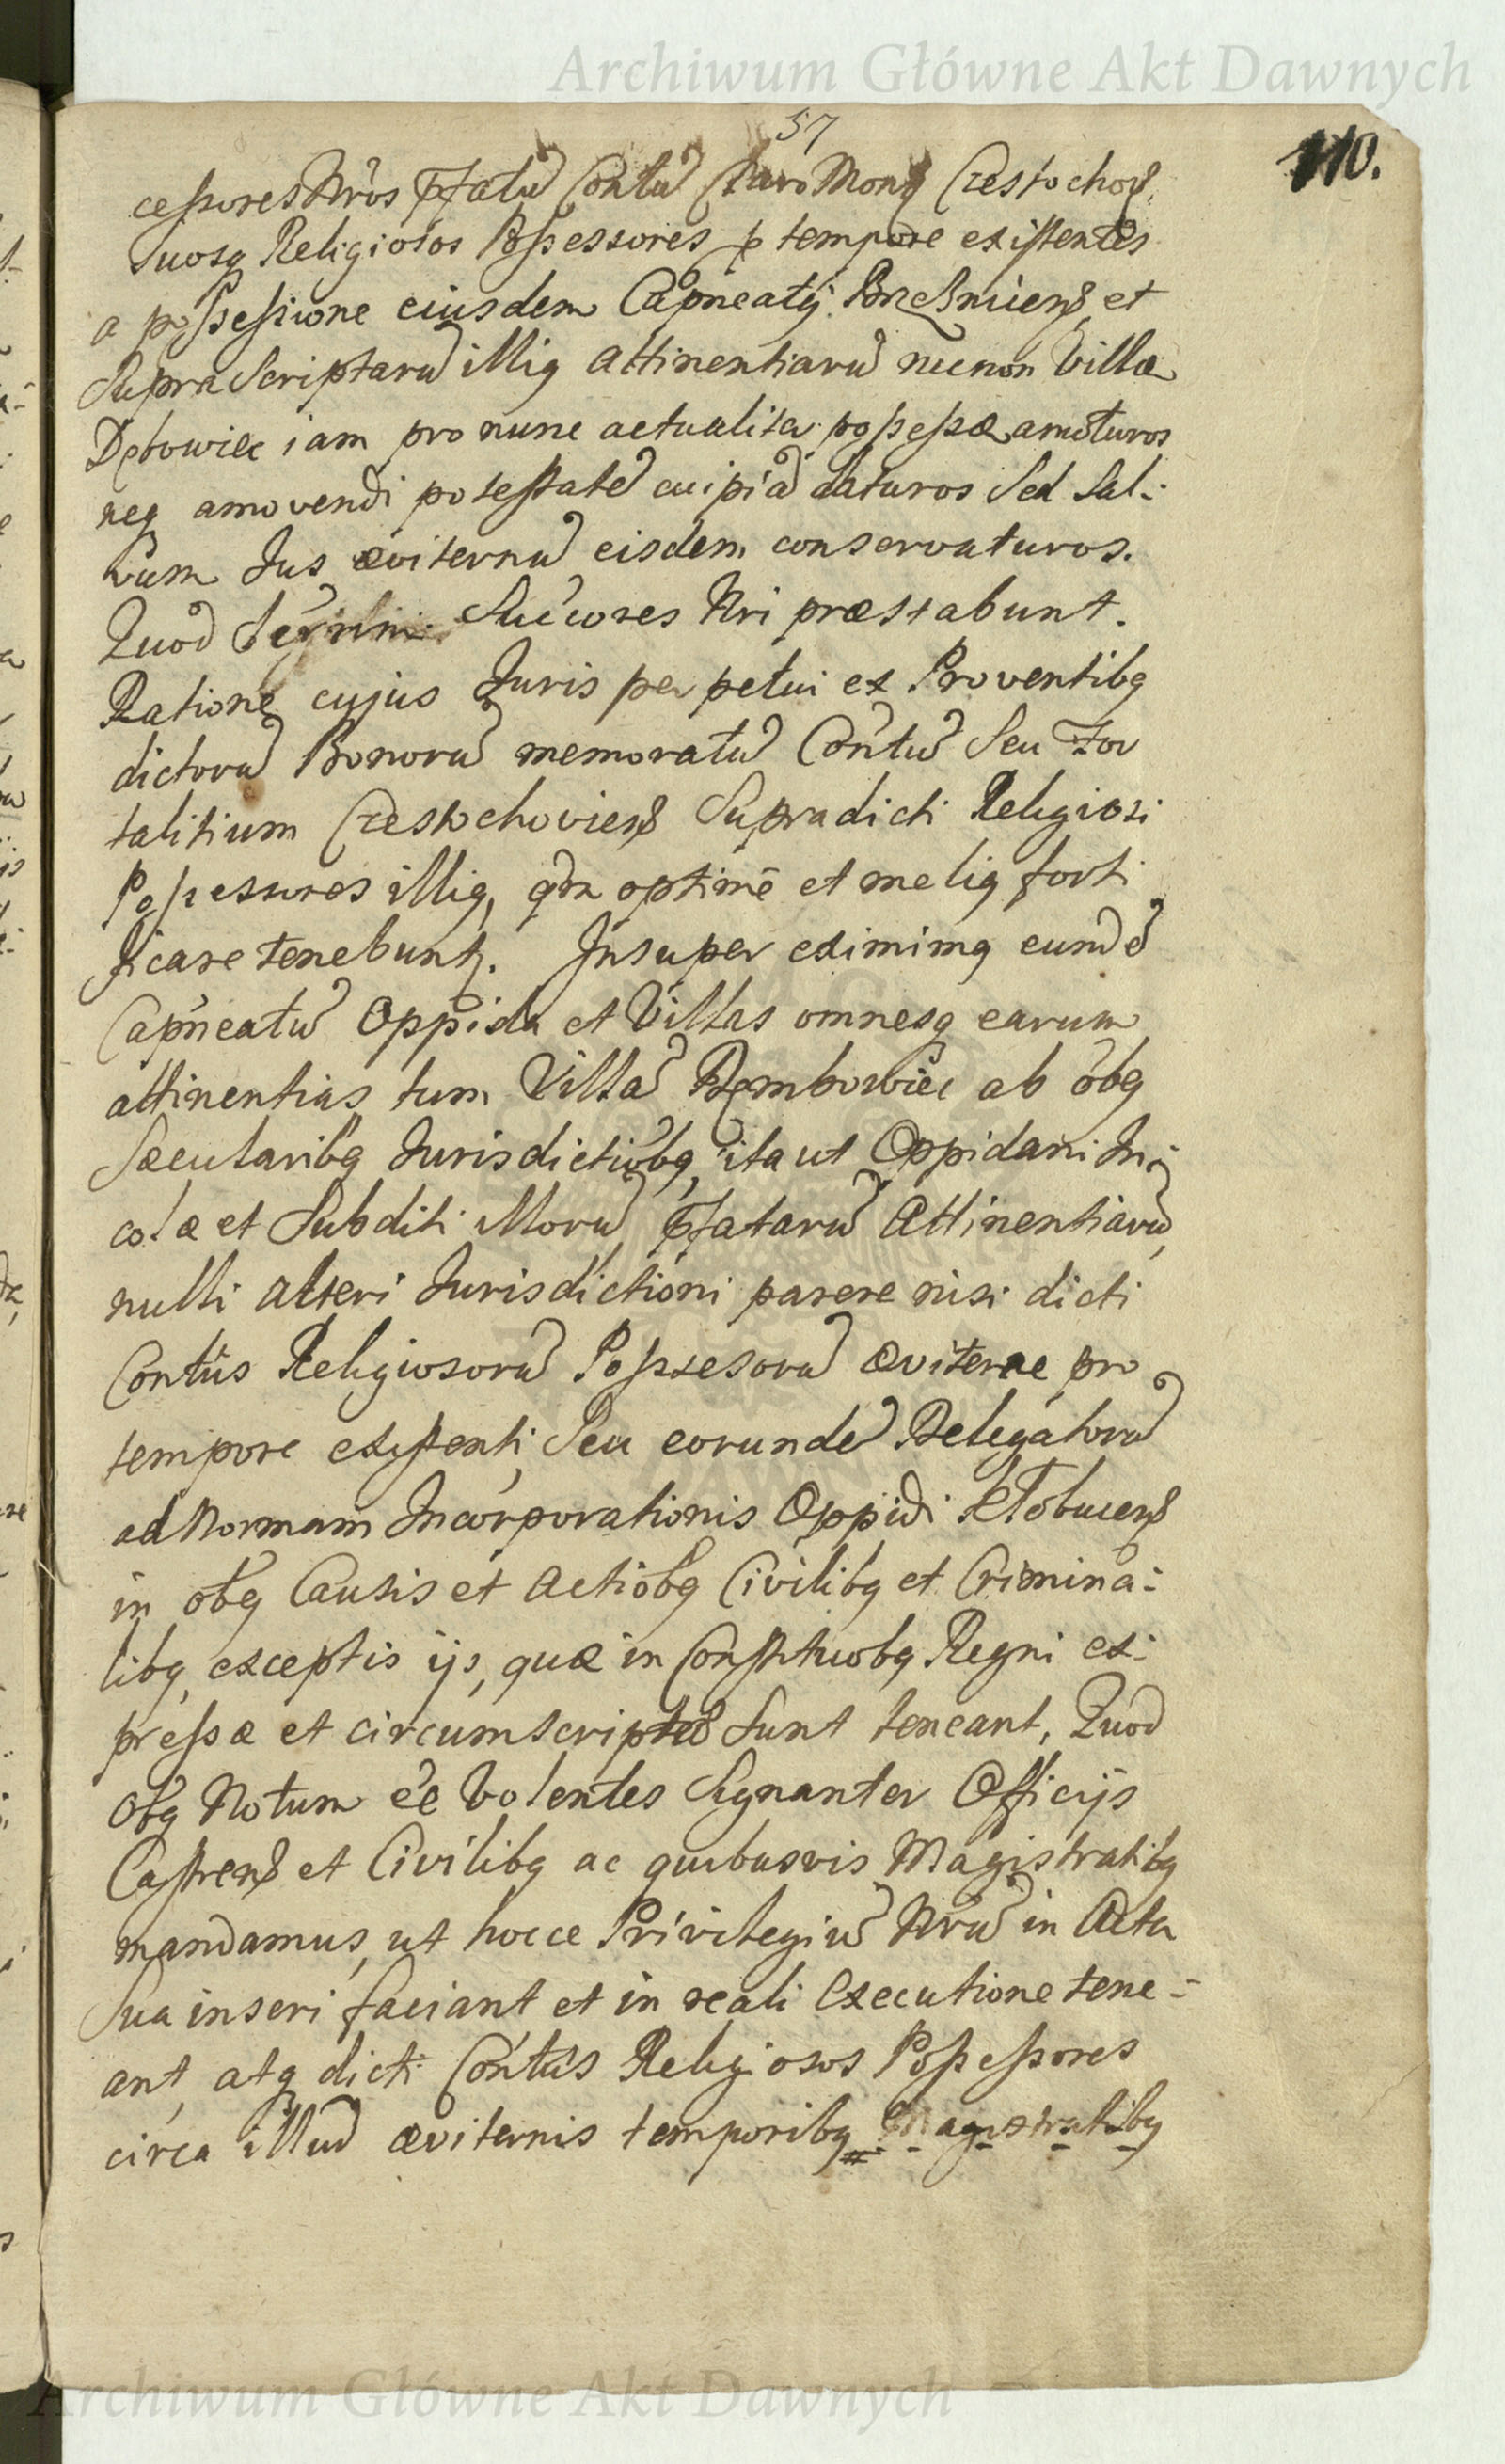 Archiwum Główne Akt Dawnych
57
110.
cessores Nros Conṽtũ Claro Monṫ Częstochoṽ,
suosq Religiosos Possessores p tempore existentes
a possessione eiusdem Capñeatq Brzeżniceñ et
supra scriptarũ illiq attinentiarũ necnon Villæ
Dębowiec iam pro nunc actualiter possessæ amoturos
neq amovendi potestatẽ cuipiã daturos Sed Sal:
vum Jus æviternũ eisdem conservaturos.
Quod Seg̃nlm̃ Succ̃ores Nri præstabunt.
Ratione cujus Juris perpetui ex Proventibq
dictorũ Bonorũ memoratũ Cõntũ Seu For
talitium Częstochovieñ Supradicti Religiosi
Possessores illiq, qm̃ optimè et meliq forti
ficare tenebunt̃. Insuper eximimq eundẽ
Capñeatũ Oppida et Villas omnesq earum
attinentias tum Villã Dembowiec ab õbq
Sæcularibq Jurisdictiõbq, ita ut Oppidani In:
colæ et Subditi illorũ Attinentiarũ,
nulli alteri Jurisdictioni parere nisi dicti
Conṽtũs Religiosorũ Possessorũ æviterne pro
tempore existenti, Seu eorundẽ Delegatorũ
ad Normam Incorporationis Oppidi Kłobuceñ
in õbq Causis et Actiõbq Civilibq et Crimina:
libq, exceptis ijs, quæ in Constitutiõbq Regni ex:
pressæ et circumscriptæ Sunt teneant, Quod
Obq Notum ẽe Volentes Signanter Officijs
Castreñ et Civilibq ac quibusvis Magistratibq
mandamus, ut hocce Privilegiũ Nrũ in Acta
Sua inseri faciant et in reali Executione tene:
ant, atq dicti Cõntũs Religiosos Possessores
circa illud æviternis temporibq Magistratibq
Archiwum Główne Akt Dawnych